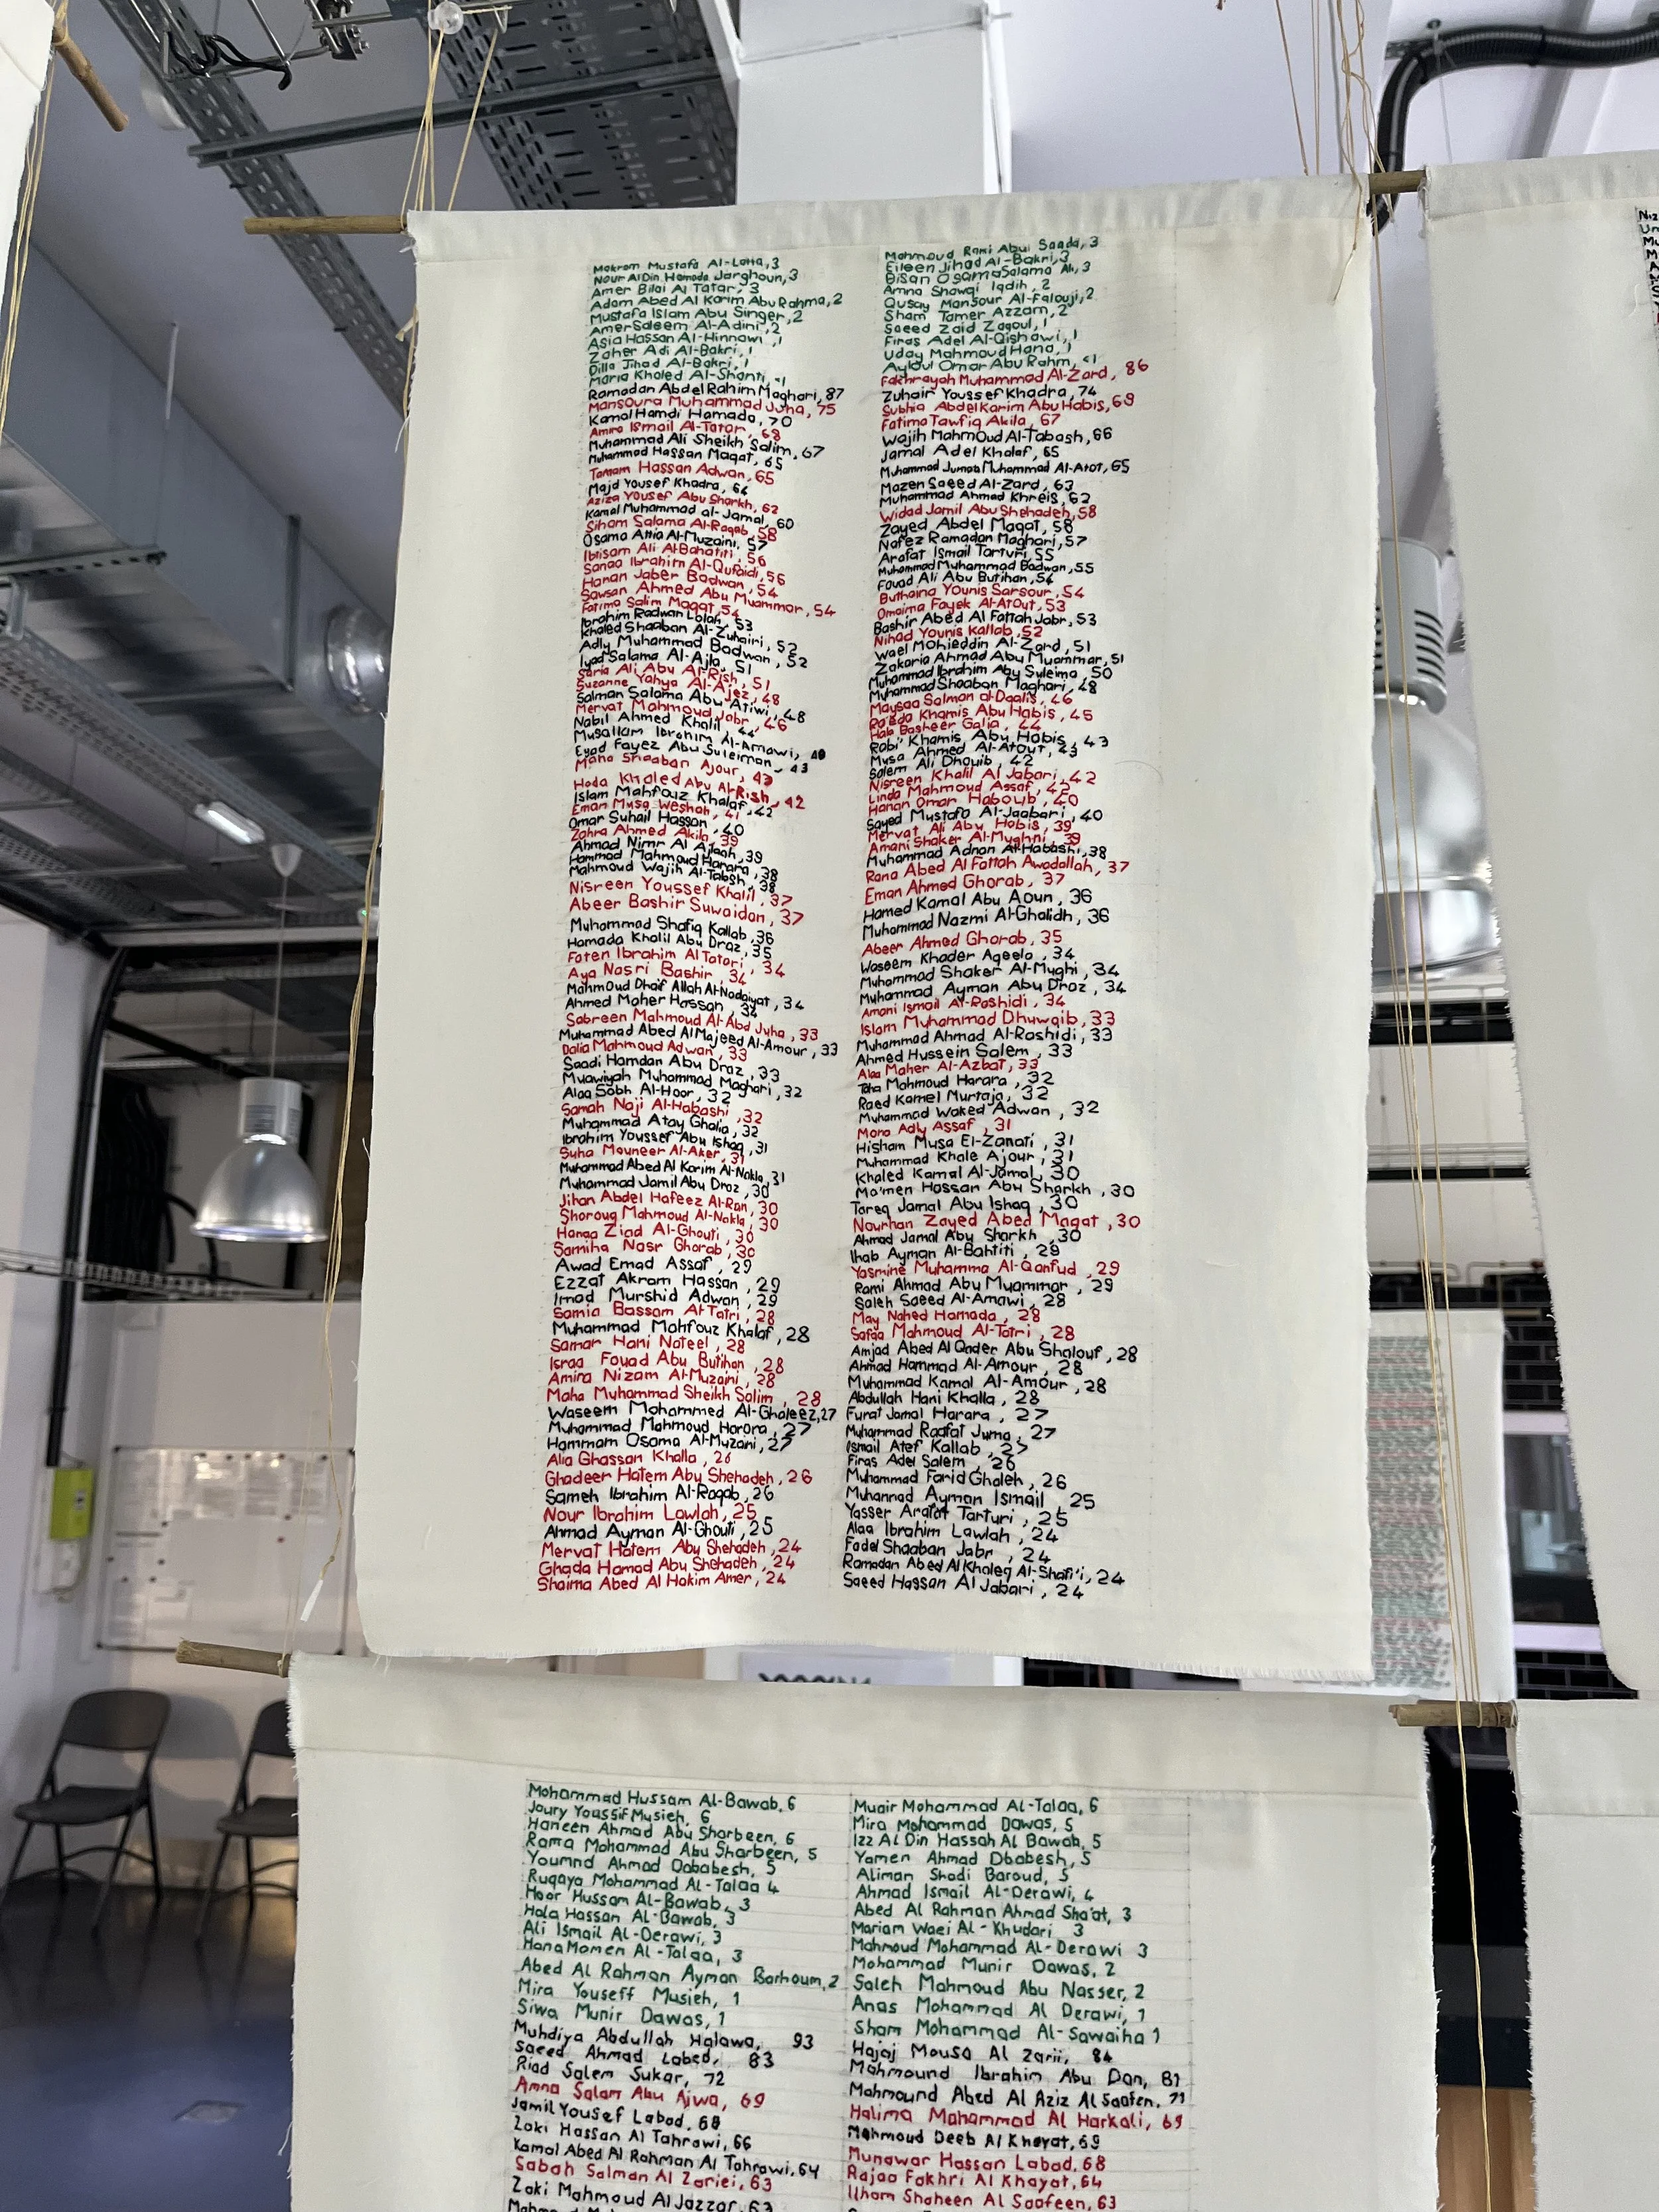 Makram Mustafa Al-Lotta, 3
Nour AlDin Hamada Jarghoun, 3
Amer Bilal Al Tatar, 3
Adam Abed Al Karim Abu Rahma, 2
Mustafa Islam Abu Singer, 2
Amer Saleem Al-Adini, 2
Asia Hassan Al-Hinnawi, 1
Zaher Adi Al-Bakri, 1
Dilla Jihad Al-Bakri, 1
Maria Khaled Al-Shanti <1
Ramadan Abdel Rahim Maghari, 87
Mansoura Muhammad Juha, 75
Kamal Hamdi Hamada, 70
Amira Ismail Al-Tatar, 68
Muhammad Ali Sheikh Salim, 67
Muhammad Hassan Maqat, 65
Tamam Hassan Adwan, 65
Majd Yousef Khadra, 64
Aziza Yousef Abu Sharkh, 62
Kamal Muhammad al-Jamal, 60
Siham Salama Al-Raqab, 58
Osama Attia Al-Muzaini, 57
Ibtisam Ali Al-Bahatiti, 56
Sanaa Ibrahim Al-Qufaidi, 56
Hanan Jaber Badwan, 54
Sawsan Ahmed Abu Muammar, 54
Fatima Salim Maqat, 54
Ibrahim Radwan Lolah, 53
Khaled Shaaban Al-Zuhairi, 52
Adly Muhammad Badwan, 52
Iyad Salama Al-Ajla, 51
Saria Ali Abu Al-Rish, 51
Suzanne Yahya Al-Ajez, 48
Salman Salama Abu Atiwi, 48
Mervat Mahmoud Jabr, 46
Nabil Ahmed Khalil, 44
Musallam Ibrahim Al-Amawi,
Eyad Fayez Abu Suleiman, 43
Maha Shaaban Ajour, 43
Hoda Khaled Abu Al-Rish, 42
Islam Mahfouz Khalaf, 42
Eman Musa Weshah, 41
Omar Suhail Hassan, 40
Zahra Ahmed Akila, 39
Ahmad Nimr Al Ajlaah, 39
Hammad Mahmoud Harara, 38
Mahmoud Wajih Al-Tabsh, 38
Nisreen Youssef Khalil, 37
Abeer Bashir Suwaidan, 37
Muhammad Shafiq Kallab, 36
Hamada Khalil Abu Draz, 35
Faten Ibrahim Al Tatari, 34
Aya Nasri Bashir, 34
Mahmoud Dhaif Allah Al-Nadaiyat, 34
Ahmed Maher Hassan, 34
Sabreen Mahmoud Al-Abd Juha, 33
Muhammad Abed Al Majeed Al-Amour, 33
Dalia Mahmoud Adwan, 33
Saadi Hamdan Abu Draz, 33
Muawiyah Muhammad Maghari, 32
Alaa Sobh Al-Hoor, 32
Samah Naji Al-Habashi, 32
Muhammad Atay Ghalia, 32
Ibrahim Youssef Abu Ishaq, 31
Suha Mouneer Al-Aker, 31
Muhammad Abed Al Karim Al-Nakla, 31
Muhammad Jamil Abu Draz, 30
Jihan Abdel Hafeez Al-Ran, 30
Shorouq Mahmoud Al-Nakla, 30
Hanaa Ziad Al-Ghouti, 30
Samiha Nasr Ghorab, 30
Awad Emad Assaf, 29
Ezzat Akram Hassan, 29
Imad Murshid Adwan, 29
Samia Bassam Al-Tatri, 28
Muhammad Mahfouz Khalaf, 28
Samar Hani Nateel, 28
Israa Fouad Abu Butihan, 28
Amira Nizam Al-Muzaini, 28
Maha Muhammad Sheikh Salim, 28
Waseem Mohammed Al-Ghaleez, 27
Muhammad Mahmoud Harara, 27
Hammam Osama Al-Muzani, 27
Alia Ghassan Khalla, 26
Ghadeer Hatem Abu Shehadeh, 26
Sameh Ibrahim Al-Raqab, 26
Nour Ibrahim Lawlah, 25
Ahmad Ayman Al-Ghouti, 25
Mervat Hatem Abu Shehadeh, 24
Ghada Hamad Abu Shehadeh, 24
Shaima Abed Al Hakim Amer, 24
Mahmoud Rami Abui Saada, 3
Eileen Jihad Al-Bakri, 3
Bisan Osama Salama Ali, 3
Amna Shawqi Iqdih, 2
Qusay Mansour Al-Falouji, 2
Sham Tamer Azzam, 2
Saeed Zaid Zaqoul, 1
Firas Adel Al-Qishawi, 1
Uday Mahmoud Hana, 1
Ayloul Omar Abu Rahm, <1
Fakhrayah Muhammad Al-Zard, 86
Zuhair Youssef Khadra, 74
Subhia AbdelKarim Abu Habis, 69
Fatima Tawfiq Akila, 67
Wajih Mahmoud Al-Tabash, 66
Jamal Adel Khalaf, 65
Muhammad Jumaa Muhammad Al-Atot, 65
Mazen Saeed Al-Zard, 63
Muhammad Ahmad Khreis, 62
Widad Jamil Abu Shehadeh, 58
Zayed Abdel Maqat, 58
Nafez Ramadan Maghari, 57
Arafat Ismail Tarturi, 55
Muhammad Muhammad Badwan, 55
Fouad Ali Abu Butihan, 54
Buthaina Younis Sarsour, 54
Omaima Fayek Al-Atout, 53
Bashir Abed Al Fattah Jabr, 53
Nihad Younis Kallab, 52
Wael Mohieddin Al-Zard, 51
Zakaria Ahmad Abu Muammar, 51
Muhammad Ibrahim Abu Suleima, 50
Muhammad Shaaban Maghari, 48
Maysaa Salman al-Daalis, 46
Raeda Khamis Abu Habis, 45
Hala Basheer Galia, 44
Rabi' Khamis Abu Habis, 43
Musa Ahmed Al-Atout, 43
Salem Ali Dhouib, 42
Nisreen Khalil Al Jabari, 42
Linda Mahmoud Assaf, 42
Hanan Omar Haboub, 40
Sayed Mustafa Al-Jaabari, 40
Mervat Ali Abu Habis, 39
Amani Shaker Al-Mughni, 39
Muhammad Adnan Al-Habashi, 38
Rana Abed Al Fattah Awadallah, 37
Eman Ahmed Ghorab, 37
Hamed Kamal Abu Aoun, 36
Muhammad Nazmi Al-Ghalidh, 36
Abeer Ahmed Ghorab, 35
Waseem Khader Aqeela, 34
Muhammad Shaker Al-Mughi, 34
Muhammad Ayman Abu Draz, 34
Amani Ismail Al-Rashidi, 34
Islam Muhammad Dhuwaib, 33
Muhammad Ahmad Al-Rashidi, 33
Ahmed Hussein Salem, 33
Alaa Maher Al-Azbat, 33
Taha Mahmoud Harara, 32
Raed Kamel Murtaja, 32
Muhammad Waked Adwan, 32
Mona Adly Assaf, 31
Hisham Musa El-Zanati, 31
Muhammad Khale Ajour, 31
Khaled Kamal Al-Jamal, 30
Ma'men Hassan Abu Sharkh, 30
Tareq Jamal Abu Ishaq, 30
Nourhan Zayed Abed Maqat, 30
Ahmad Jamal Abu Sharkh, 30
Ihab Ayman Al-Bahtiti, 29
Yasmine Muhamma Al-Qanfud, 29
Rami Ahmad Abu Muammar, 29
Saleh Saeed Al-Amawi, 28
May Nahed Hamada, 28
Safaa Mahmoud Al-Tatri, 28
Amjad Abed Al Qader Abu Shalouf, 28
Ahmad Hammad Al-Amour, 28
Muhammad Kamal Al-Amour, 28
Abdullah Hani Khalla, 28
Furat Jamal Harara, 27
Muhammad Raafat Juma, 27
Ismail Atef Kallab, 27
Firas Adel Salem, 26
Muhammad Farid Ghaleh, 26
Muhannad Ayman Ismail 25
Yasser Arafat Tarturi, 25
Alaa Ibrahim Lawlah, 24
Fadel Shaaban Jabr, 24
Ramadan Abed Al Khaleq Al-Shafi'i, 24
Saeed Hassan Al Jabari, 24
Mohammad Hussam Al-Bawab, 6
Joury Youssif Musieh, 6
Haneen Ahmad Abu Sharbeen, 6
Rama Mohammad Abu Sharbeen, 5
Youmnd Ahmad Dababesh, 5
Ruqaya Mohammad Al-Talaa 4
Hoor Hussam Al-Bawab, 3
Hala Hassan Al-Bawab, 3
Ali Ismail Al-Derawi, 3
Hana Momen Al-Talaa, 3
Abed Al Rahman Ayman Barhoum, 2
Mira Youseff Musieh, 1
Siwa Munir Dawas, 1
Muhdiya Abdullah Halawa, 93
Saeed Ahmad Labed, 83
Riad Salem Sukar, 72
Amna Salam Abu Ajwa, 69
Jamil Yousef Labad, 68
Zaki Hassan Al Tahrawi, 66
Kamal Abed Al Rahman Al Tahrawi, 64
Sabah Salman Al Zariei, 63
Zaki Mahmoud Al Jazzar, 63
Muair Mohammad Al-Talaa, 6
Mira Mohammad Dawas, 5
Izz Al Din Hassah Al Bawab, 5
Yamen Ahmad Dbabesh, 5
Aliman Shadi Baroud, 5
Ahmad Ismail Al-Derawi, 4
Abed Al Rahman Ahmad Sha'at, 3
Mariam Waei Al-Khudari 3
Mahmoud Mohammad Al-Derawi 3
Mohammad Munir Dawas, 2
Saleh Mahmoud Abu Nasser, 2
Anas Mohammad Al Derawi, 1
Sham Mohammad Al-Sawaiha 1
Hajaj Mousa Al Zarii, 84
Mahmound Ibrahim Abu Dan, 81
Mahmound Abed Al Aziz Al Saafen, 71
Halima Mohammad Al Harkali, 69
Mahmoud Deeb Al Khayat, 69
Munawar Hassan Labad, 68
Rajaa Fakhri Al Khayat, 64
Ilham Shaheen Al Saafeen, 63